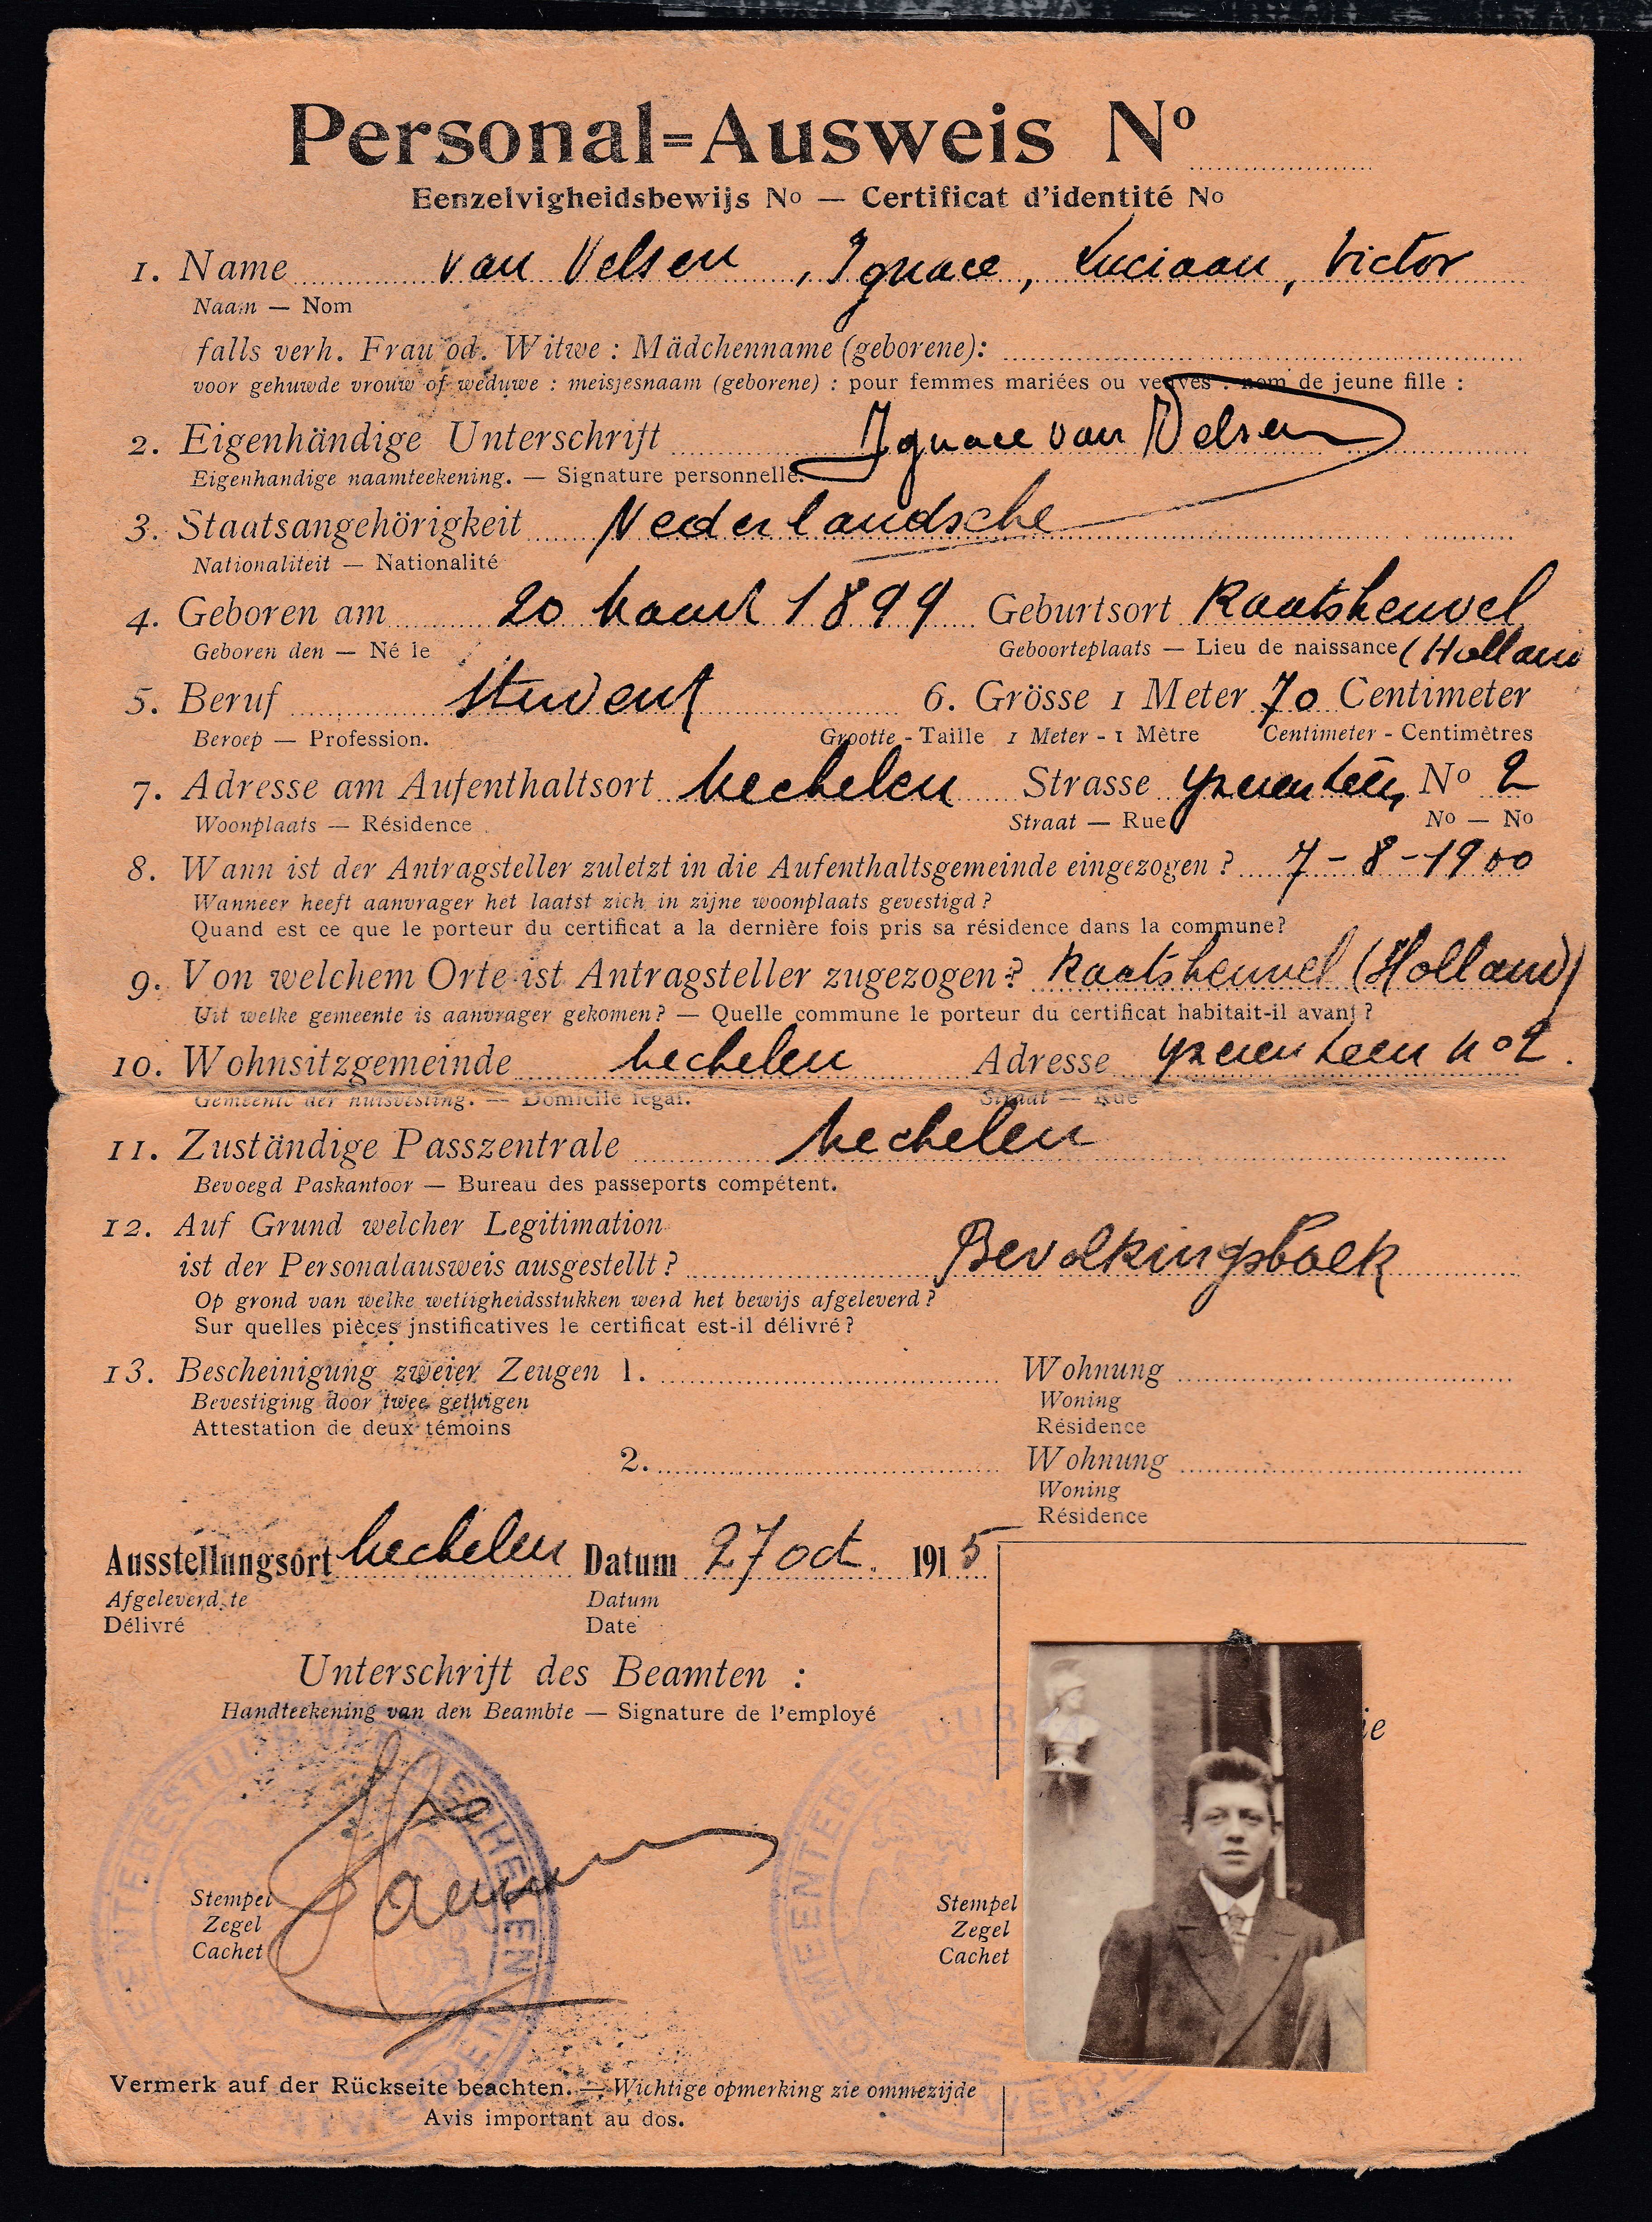 Personal=Ausweis Nº
Eenzelvigheidsbewijs No — Certificat d'identité No
1. Name van Velsen, Ignace, Luciaan, Victor
Naam — Nom
falls verh. Frau od. Witwe : Mädchenname (geborene):
voor gehuwde vrouw of weduwe : meisjesnaam (geborene) : pour femmes mariées ou veuves : nom de jeune fille :
2. Eigenhändige Unterschrift Ignace van Velsen
Eigenhandige naamteekening. — Signature personnelle.
3. Staatsangehörigkeit Nederlandsche
Nationaliteit — Nationalité
4. Geboren am 20 Maart 1899 Geburtsort Kaatsheuvel
Geboren den — Né le Geboorteplaats — Lieu de naissance (Holland
5. Beruf Student 6. Grösse 1 Meter 70 Centimeter
Beroep — Profession. Grootte - Taille 1 Meter - 1 Mètre Centimeter - Centimètres
7. Adresse am Aufenthaltsort Mechelen Strasse Nº 2
Woonplaats — Résidence Straat — Rue No — No
8. Wann ist der Antragsteller zuletzt in die Aufenthaltsgemeinde eingezogen ? 7-8-1900
Wanneer heeft aanvrager het laatst zich in zijne woonplaats gevestigd ?
Quand est ce que le porteur du certificat a la dernière fois pris sa résidence dans la commune?
9. Von welchem Orte ist Antragsteller zugezogen ? Kaatsheuvel (Holland)
Uit welke gemeente is aanvrager gekomen? — Quelle commune le porteur du certificat habitait-il avant ?
10. Wohnsitzgemeinde Mechelen Adresse Yzerenleen nº 2.
Gemeente der huisvesting. — Domicile légal. Straat — Rue
11. Zuständige Passzentrale Mechelen
Bevoegd Paskantoor — Bureau des passeports compétent.
12. Auf Grund welcher Legitimation
ist der Personalausweis ausgestellt ? Bevolkingsboek
Op grond van welke wettigheidsstukken werd het bewijs afgeleverd ?
Sur quelles pièces jnstificatives le certificat est-il délivré ?
13. Bescheinigung zweier Zeugen 1. Wohnung
Bevestiging door twee getuigen Woning
Attestation de deux témoins Résidence
2. Wohnung
Woning
Résidence
Ausstellungsort Mechelen Datum 27 oct. 1915
Afgeleverd te Datum
Délivré Date
Unterschrift des Beamten :
Handteekening van den Beambte — Signature de l'employé
ie
GEMEENTEBESTUUR VAN MECHELEN
GEMEENTEBESTUUR
Stempel Stempel
Zegel Zegel
Cachet Cachet
Vermerk auf der Rückseite beachten. — Wichtige opmerking zie ommezijde
Avis important au dos.